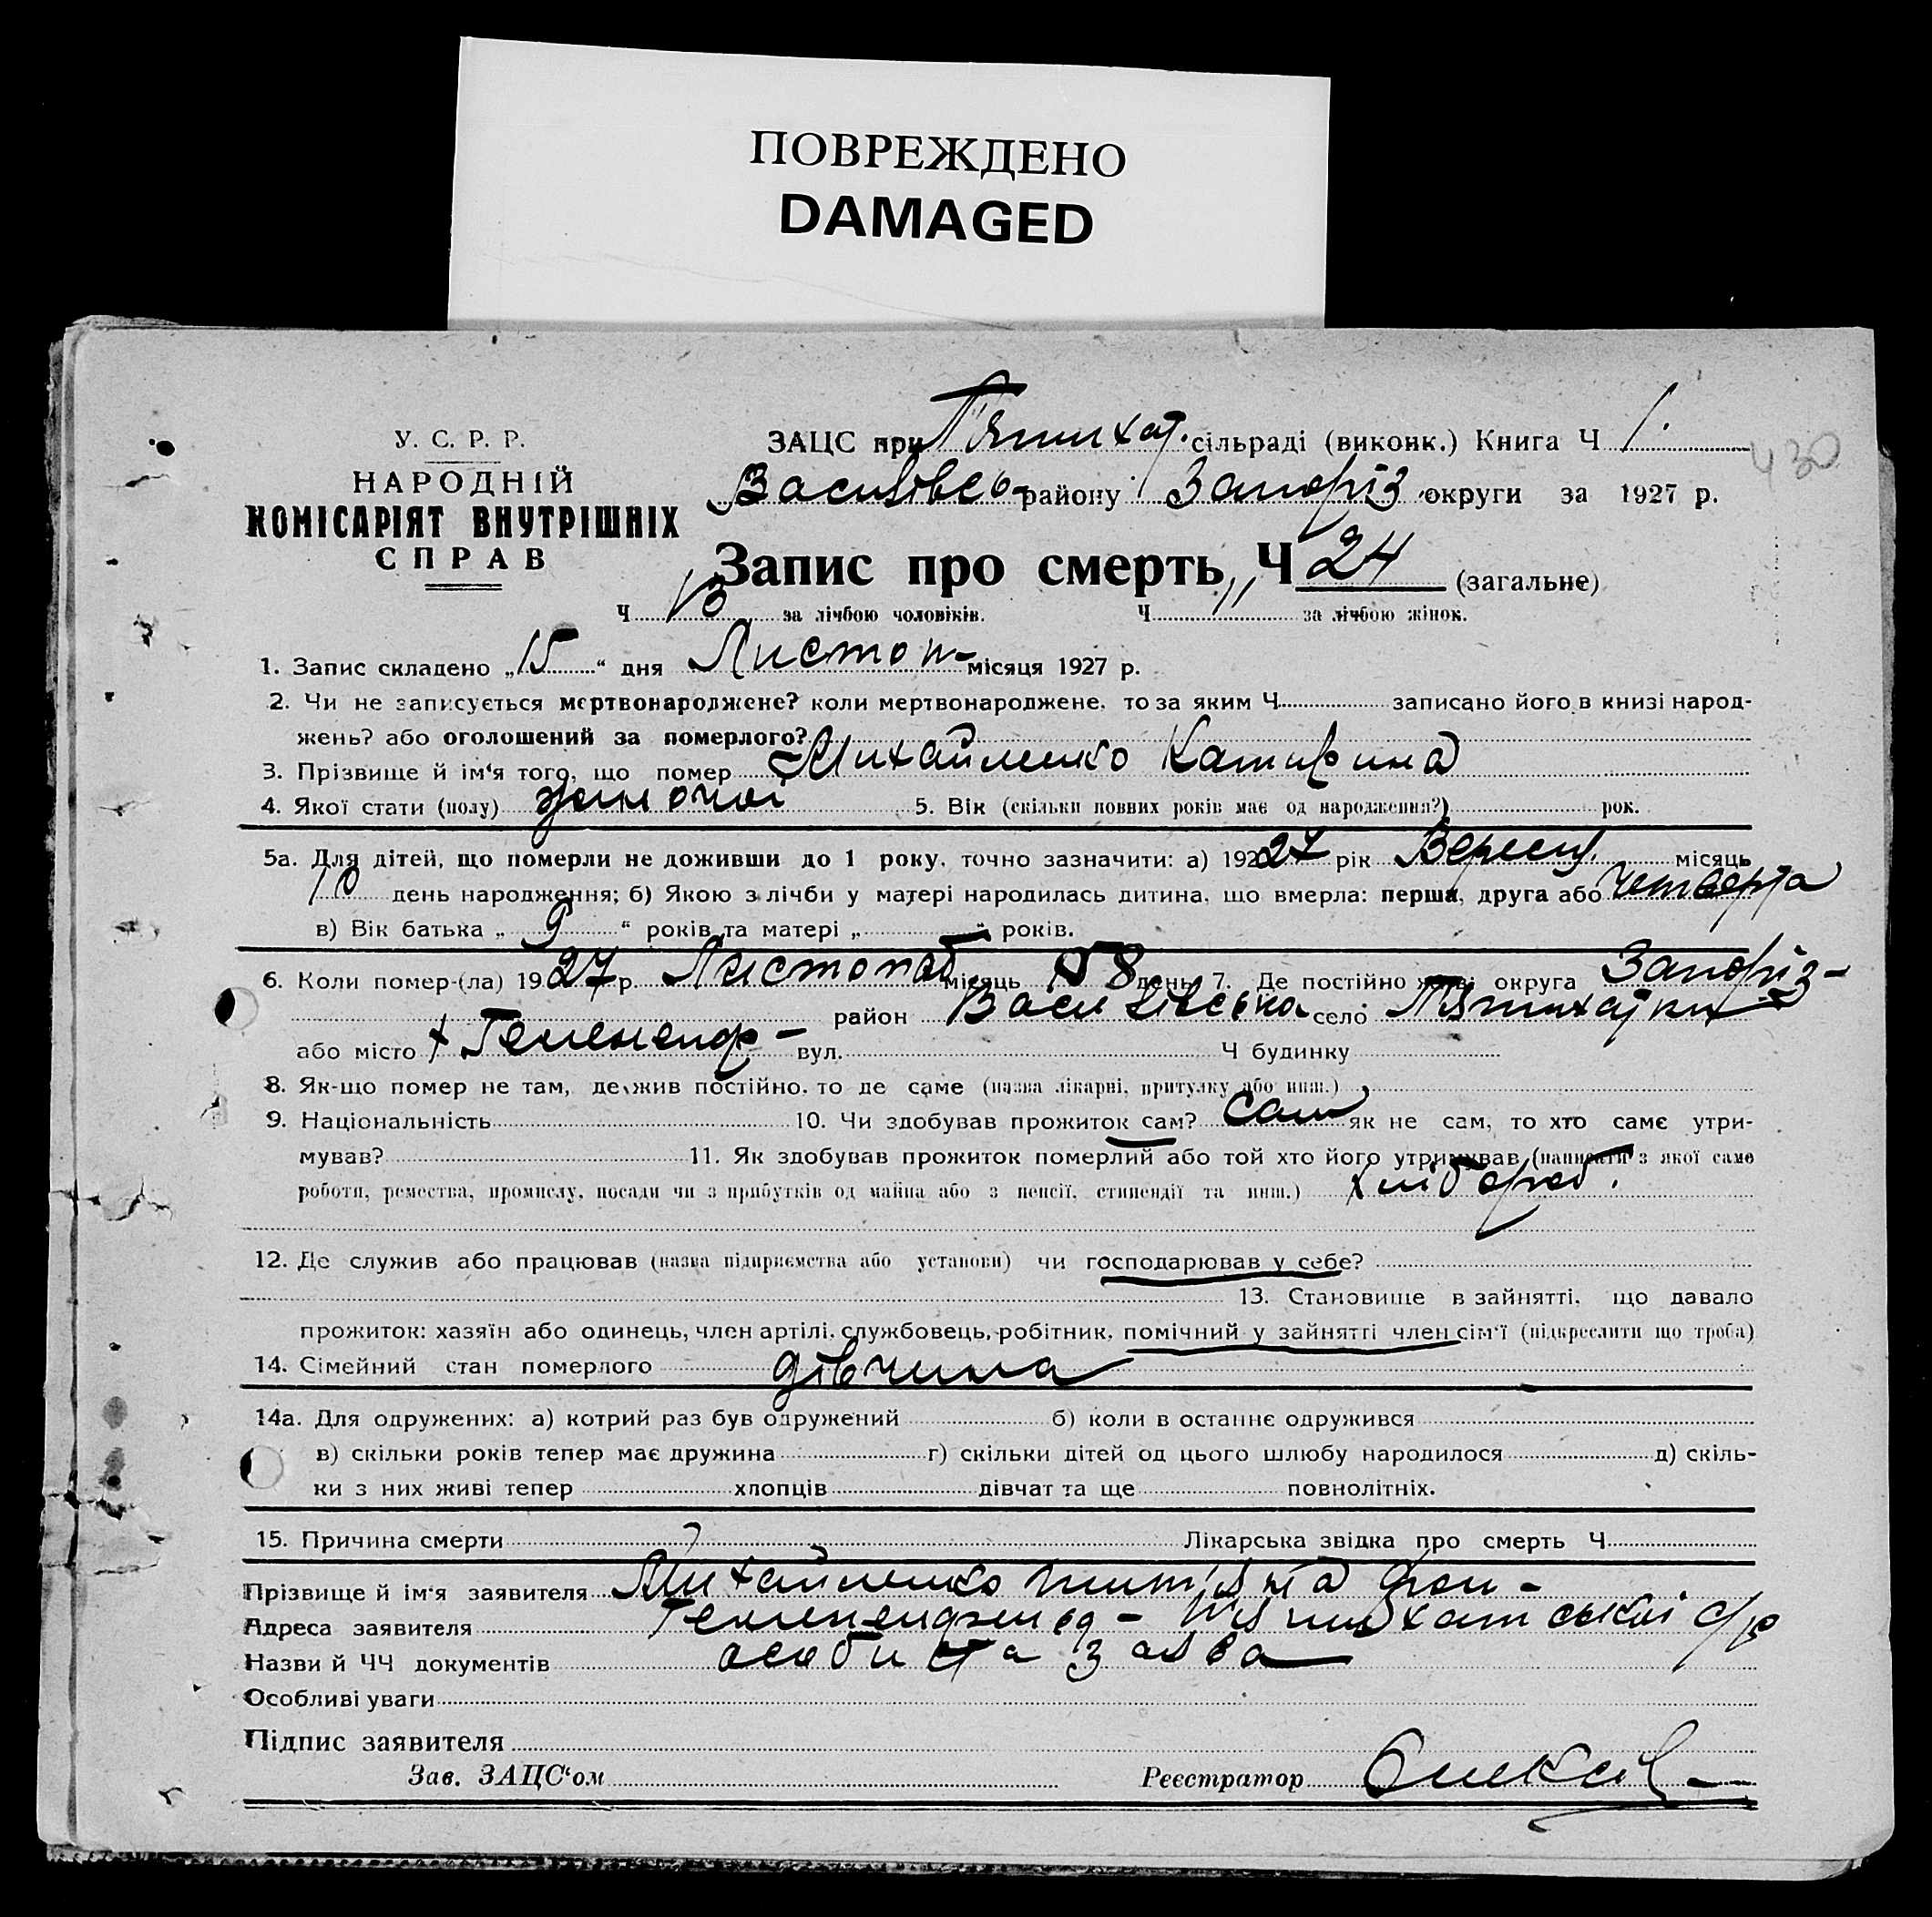 ПОВРЕЖДЕНО
DAMAGED
У. С. Р. Р.
НАРОДНІЙ
КОМІСАРІЯТ ВНУТРІШНІХ
СПРАВ
ЗАЦС при Пятихат. сільраді (виконк.) Книга Ч 1.
430
Василівсь- району Запоріз округи за 1927 р.
Запис про смерть Ч 24 (загальне)
Ч 13 за лічбою чоловіків. Ч 11 за лічбою жінок.
1. Запис складено „15“ дня Листоп- місяця 1927 р.
2. Чи не записується мертвонароджене? коли мертвонароджене, то за яким Ч записано його в книзі народ-
жень? або оголошений за померлого?
3. Прізвище й ім'я того, що помер Михайленко Катирина
4. Якої стати (полу) жіночої 5. Вік (скільки повних років має од народження?) рок.
5а. Для дітей, що померли не доживши до 1 року, точно зазначити: а) 192 27 рік Вересня місяць
10 день народження; б) Якою з лічби у матері народилась дитина, що вмерла: перша, друга або четверта
в) Вік батька „ 9 “ років та матері „ “ років.
6. Коли помер-(ла) 19 27 р. Листопад місяць 8 день 7. Де постійно жив: округа Запоріз-
район Василівська село Пятихатки
або місто х вул. Ч будинку
8. Як-що помер не там, де жив постійно, то де саме (назва лікарні, притулку або инш.)
9. Національність 10. Чи здобував прожиток сам? сам як не сам, то хто саме утри-
мував? 11. Як здобував прожиток померлий або той хто його утримував (написати з якої саме
роботи, ремества, промислу, посади чи з прибутків од майна або з пенсії, стипендії та инш.) хлібороб.
12. Де служив або працював (назва підприємства або установи) чи господарював у себе?
13. Становище в зайнятті, що давало
прожиток: хазяїн або одинець, член артілі, службовець, робітник, помічний у зайнятті член сім'ї (підкреслити що треба)
14. Сімейний стан померлого дівчина
14а. Для одружених: а) котрий раз був одружений б) коли в останнє одружився
в) скільки років тепер має дружина г) скільки дітей од цього шлюбу народилося д) скіль-
ки з них живі тепер хлопців дівчат та ще повнолітніх.
15. Причина смерти ? Лікарська звідка про смерть Ч
Прізвище й ім'я заявителя Михайленко
Адреса заявителя Пятихатської с/р
Назви й ЧЧ документів особиста заява
Особливі уваги
Підпис заявителя
Зав. ЗАЦС'ом Реєстратор